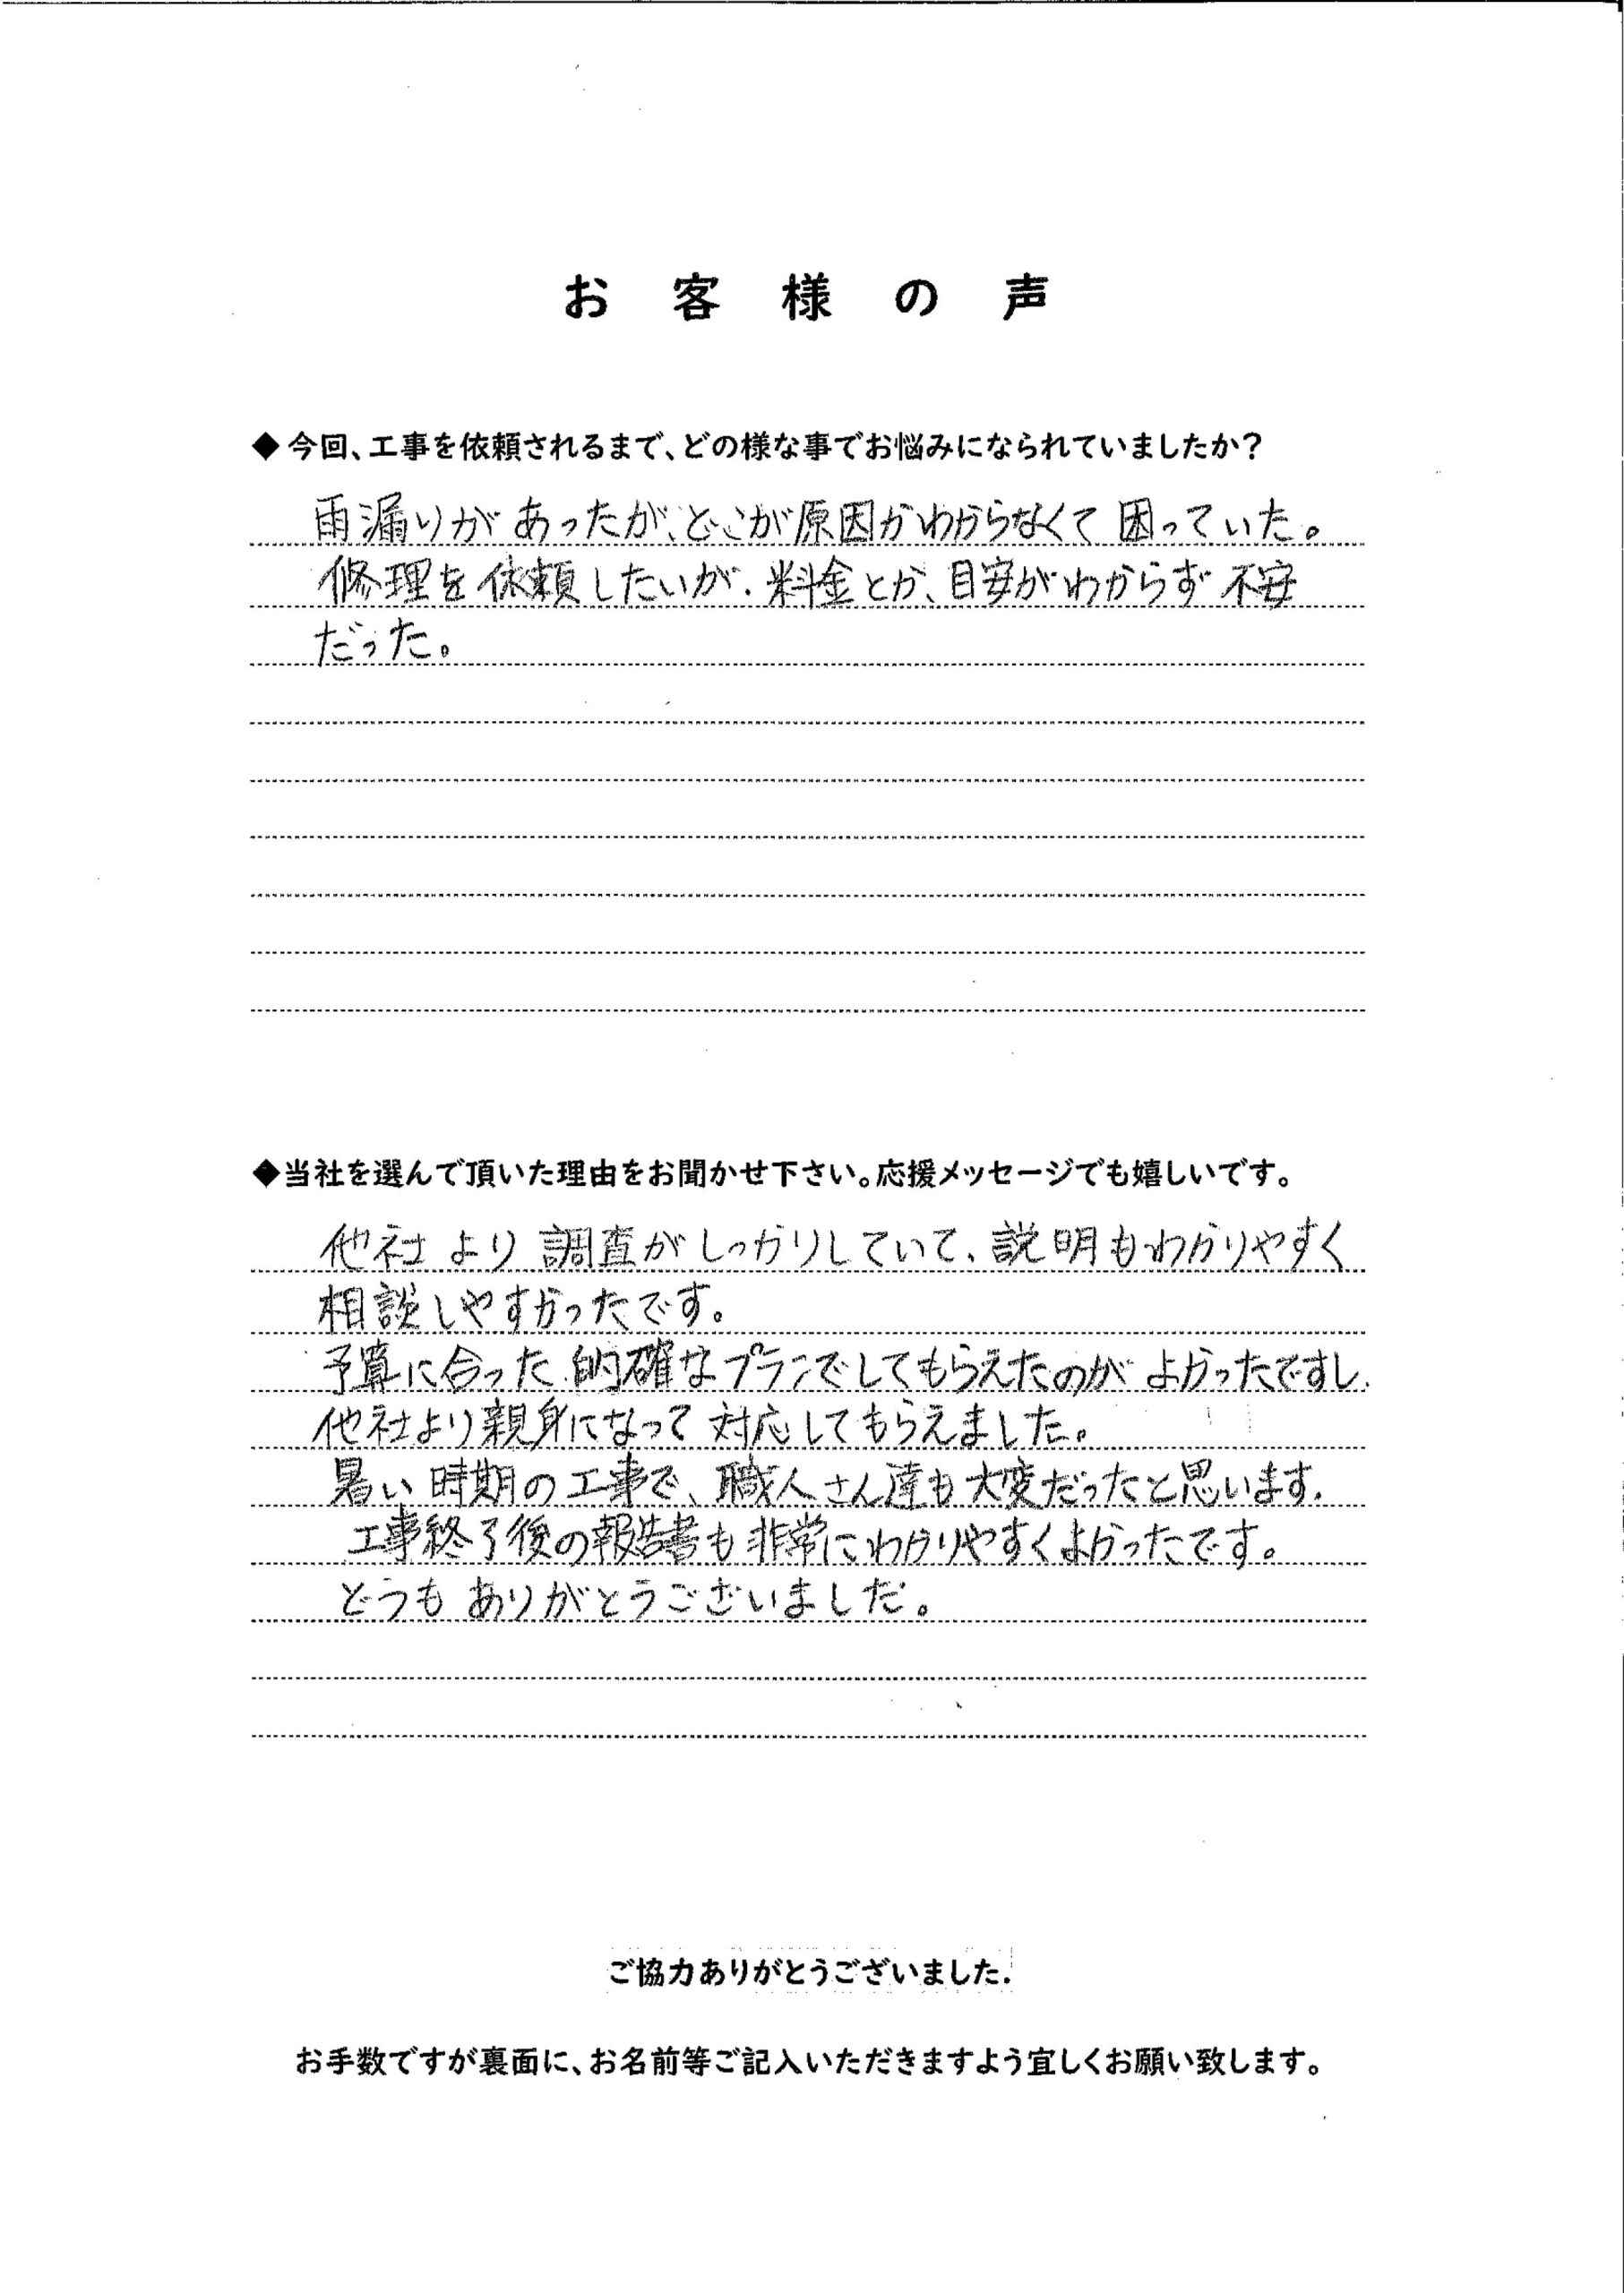 お客様の声
◆今回、工事を依頼されるまで、どの様な事でお悩みになられていましたか？
雨漏りがあったが、どこが原因かわからなくて困っていた。
修理を依頼したいが、料金とか、目安がわからず不安
だった。
◆当社を選んで頂いた理由をお聞かせ下さい。応援メッセージでも嬉しいです。
他社より調査がしっかりしていて、説明もわかりやすく
相談しやすかったです。
予算に合った的確なプランでしてもらえたのがよかったですし、
他社より親身になって対応してもらえました。
暑い時期の工事で、職人さん達も大変だったと思います。
工事終了後の報告書も非常にわかりやすくよかったです。
どうもありがとうございました。
ご協力ありがとうございました.
お手数ですが裏面に、お名前等ご記入いただきますよう宜しくお願い致します。